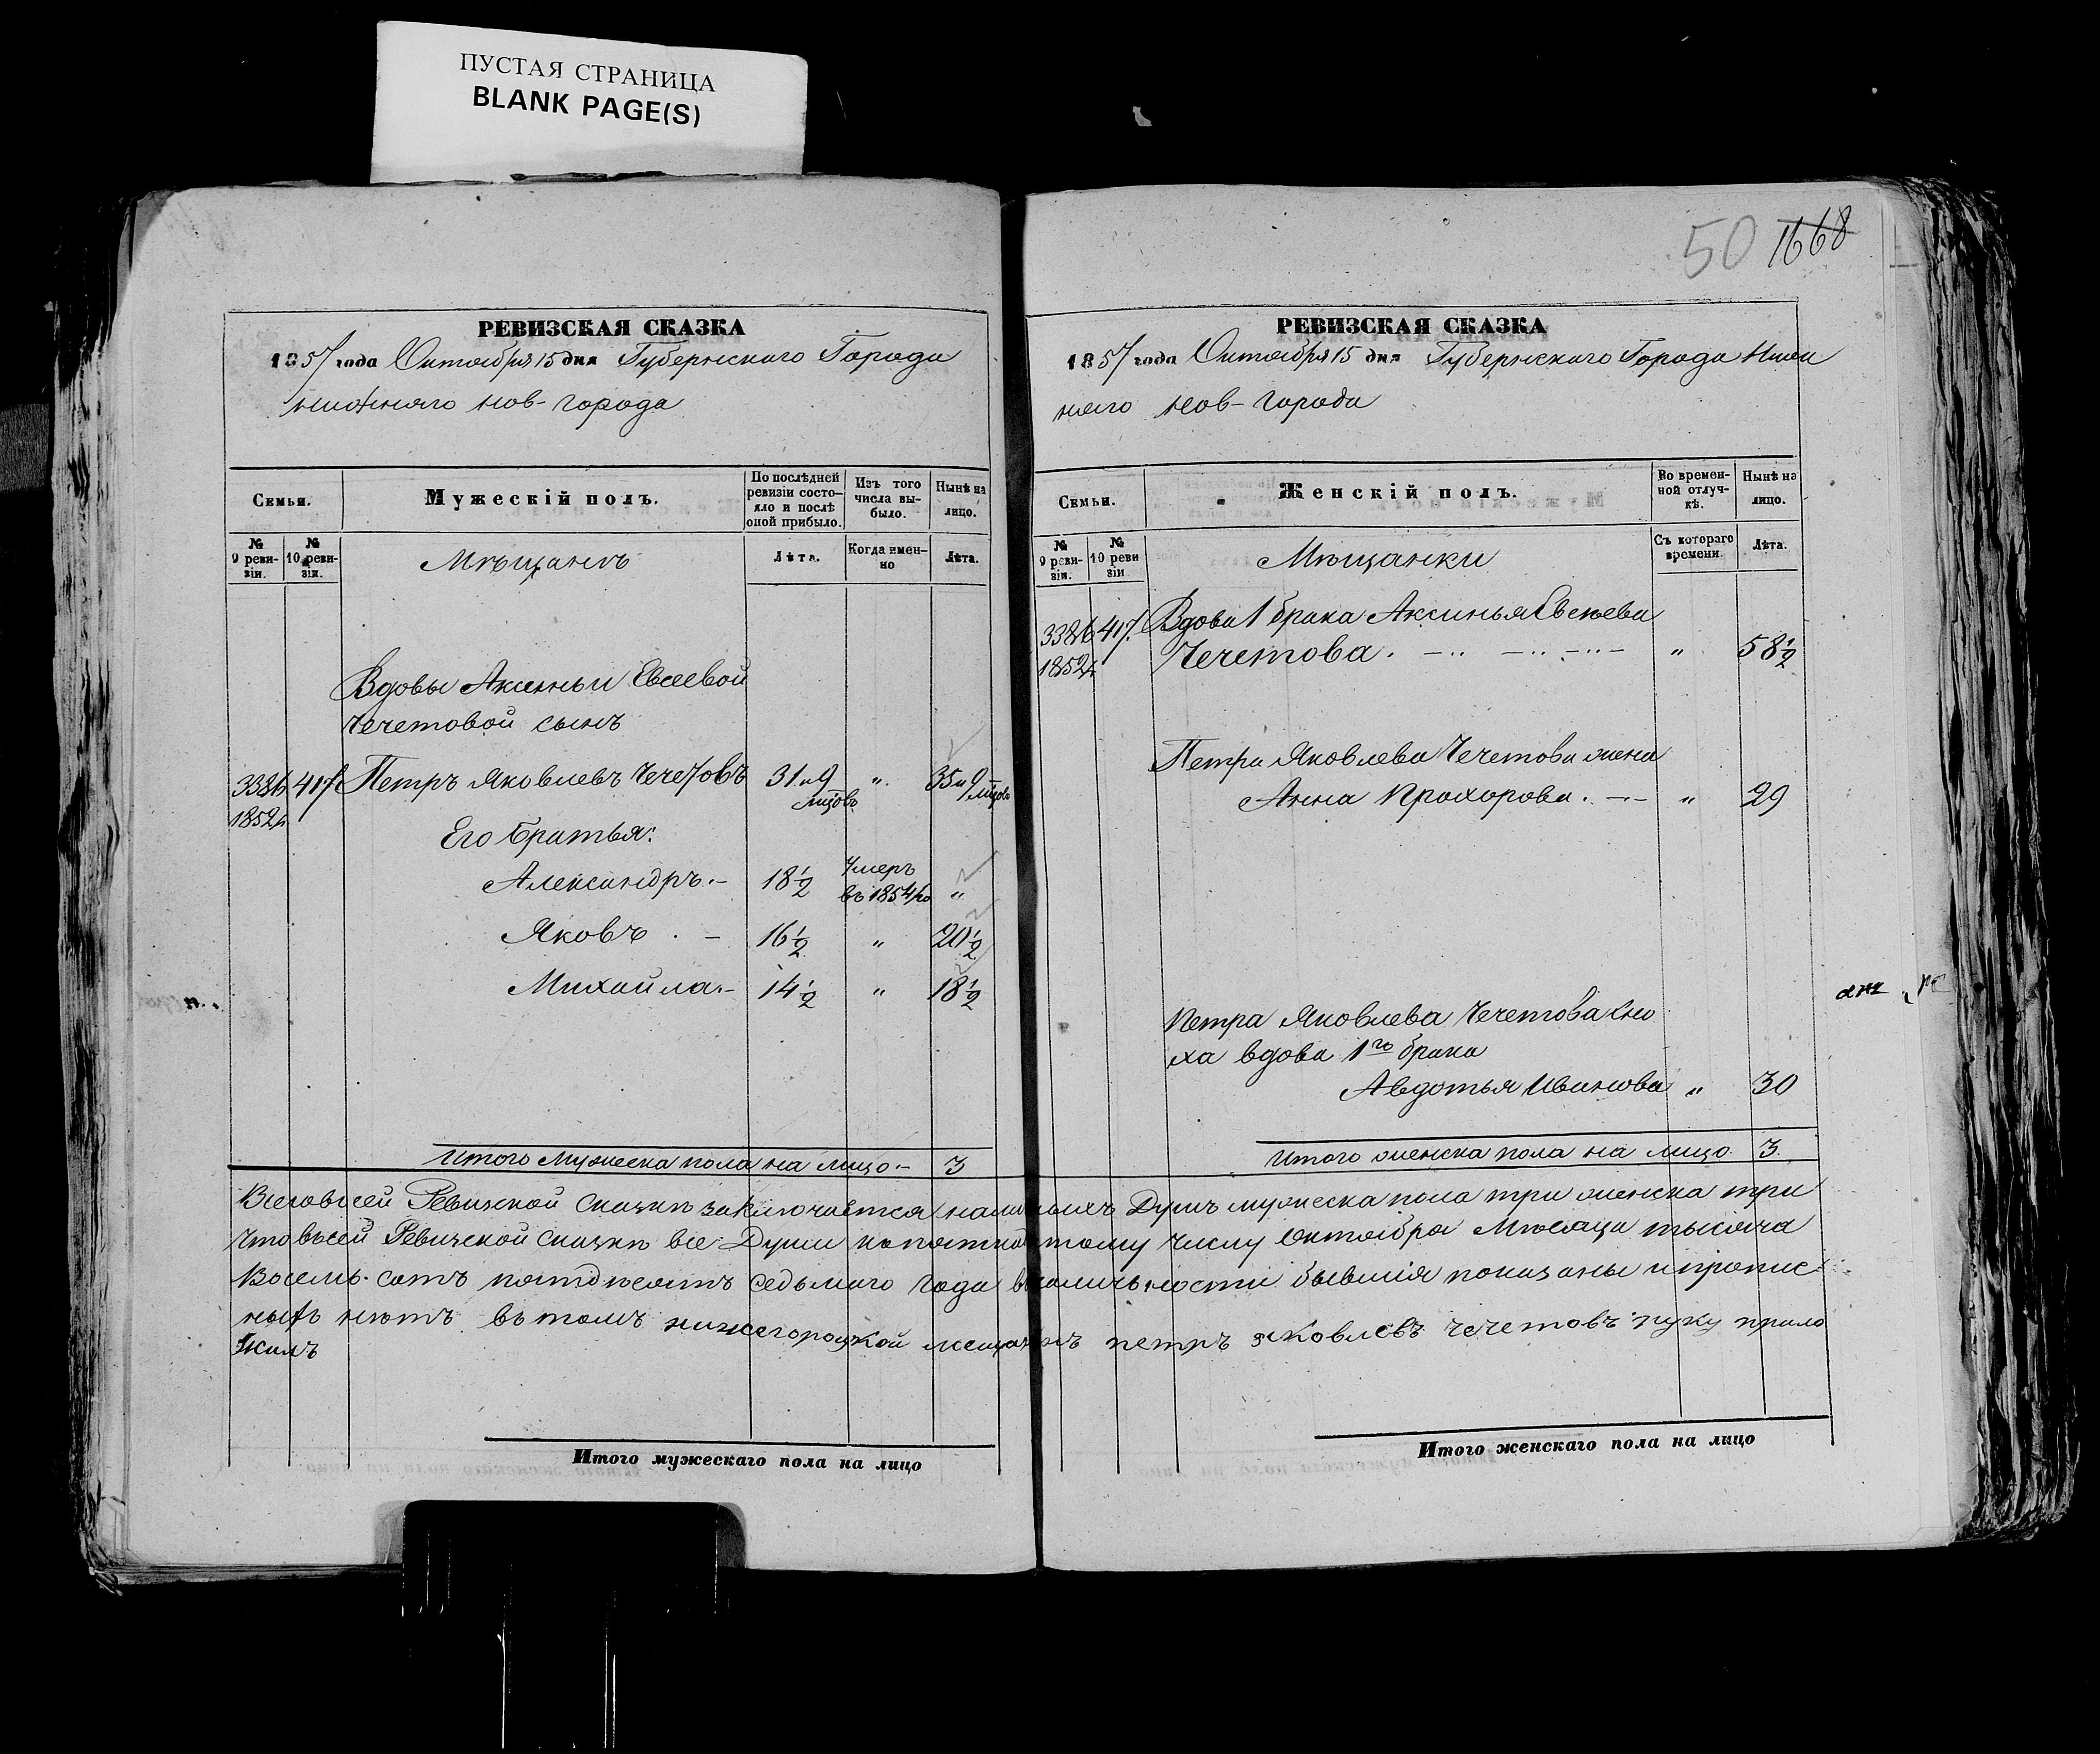 ПУСТАЯ СТРАНИЦА
BLANK PAGE(S)
РЕВИЗСКАЯ СКАЗКА
1857 года Октября 15 дня Губернскаго Города
нижняго нов-города
Семьи.
Мужескій полъ.
По послѣдней
ревизіи состо-
яло и послѣ
оной прибыло.
Изъ того
числа вы-
было.
Нынѣ на
лицо.
№
9 реви-
зіи.
№
10 реви-
зіи.
Мѣщанъ
Лѣта.
Когда имен-
но
Лѣта.
Вдовы Аксиньи Евсеевой
Чечетовой сынъ
3386 417 Петръ Яковлевъ Чечетовъ 31 и 9 мцовъ " 35 и 9 мцовъ
1852
Его братья:
Александръ.- 18½ Умеръ въ 1854 го "
Яковъ . - 16½ " 20½
Михайла.- 14½ " 18½
Итого Мужеска пола на лицо.- 3
50 1668
РЕВИЗСКАЯ СКАЗКА
1857 года Октября 15 дня Губернскаго Города Ниж
няго нов-города
Семьи.
Женскій полъ.
Во времен-
ной отлуч-
кѣ.
Нынѣ на
лицо.
№
9 реви-
зіи.
№
10 реви
зіи
Мѣщанки
Съ котораго
времени.
Лѣта.
3386 417. Вдова 1 брака Аксинья Евсѣева
1852 Чечетова. " 58½
Петра Яковлева Чечетова жена
Анна Прохорова. " 29
Петра Яковлева Чечетова сно
ха вдова 1го брака
Авдотья Иванова " 30
Итого женска пола на лицо 3.
Всеговсей Ревизской Сказкѣ заключается наличныхъ Душъ мужеска пола три женска три
Чтовьсей Ревизской Сказкѣ все Души попятнадцатому числу Октября Мѣсяца тысяча
Восемь-сотъ пятдѣсятъ седьмого года вналичьности бывшія показаны ипропис
ныхъ нѣтъ въ томъ нижегороцкой мещанинъ петръ яковлевъ чечетовъ руку прило
жилъ
Итого мужескаго пола на лицо
Итого женскаго пола на лицо